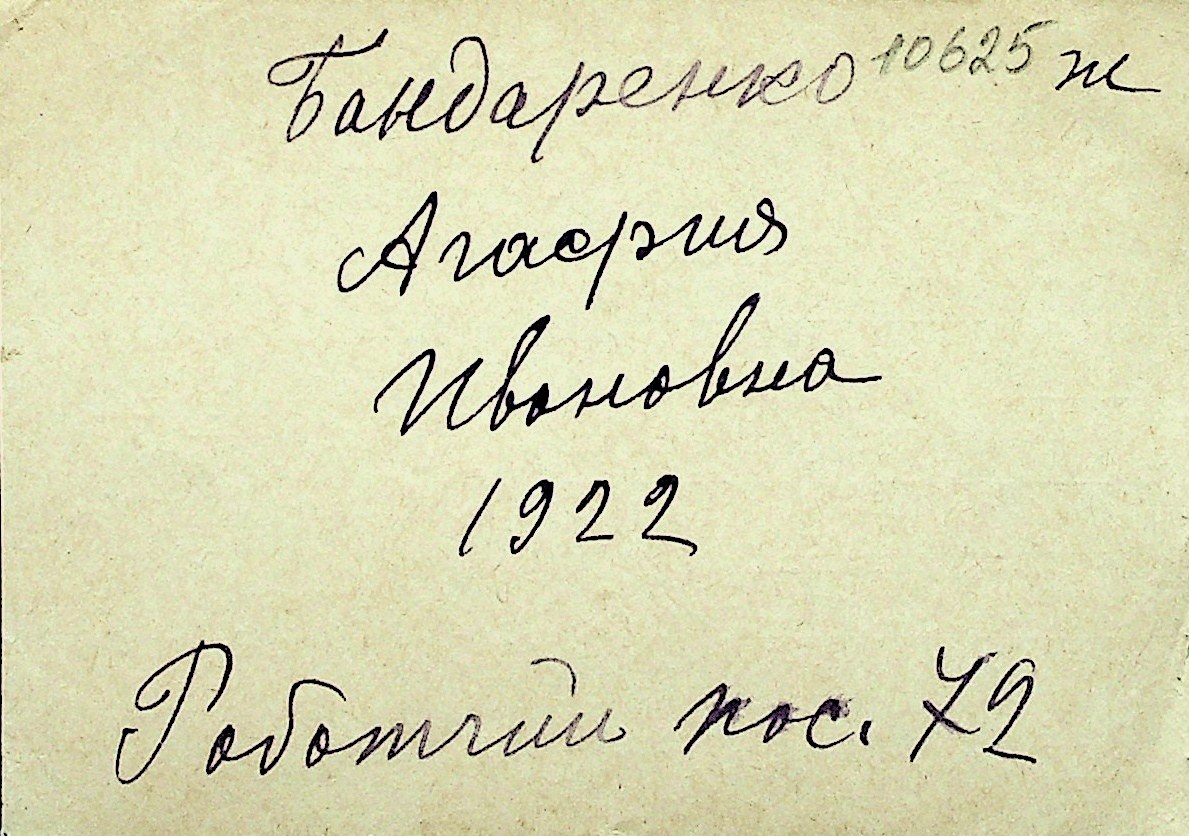 Бандаренко 10625 ж
Агафия
Ивановна
1922
Работчий пос. 72